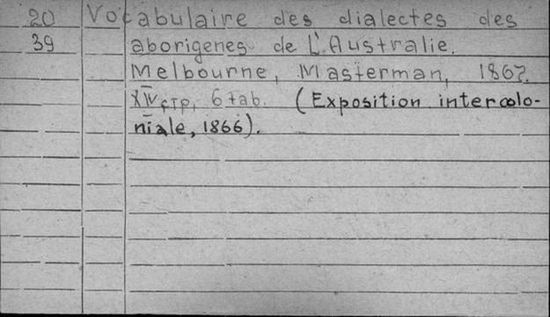 20 Vocabulaire des dialectes des
39 aborigenes de L'Australie.
Melbourne, Masterman, 1867.
XIV стр, 6 tab. (Exposition intercolo-
niale, 1866).